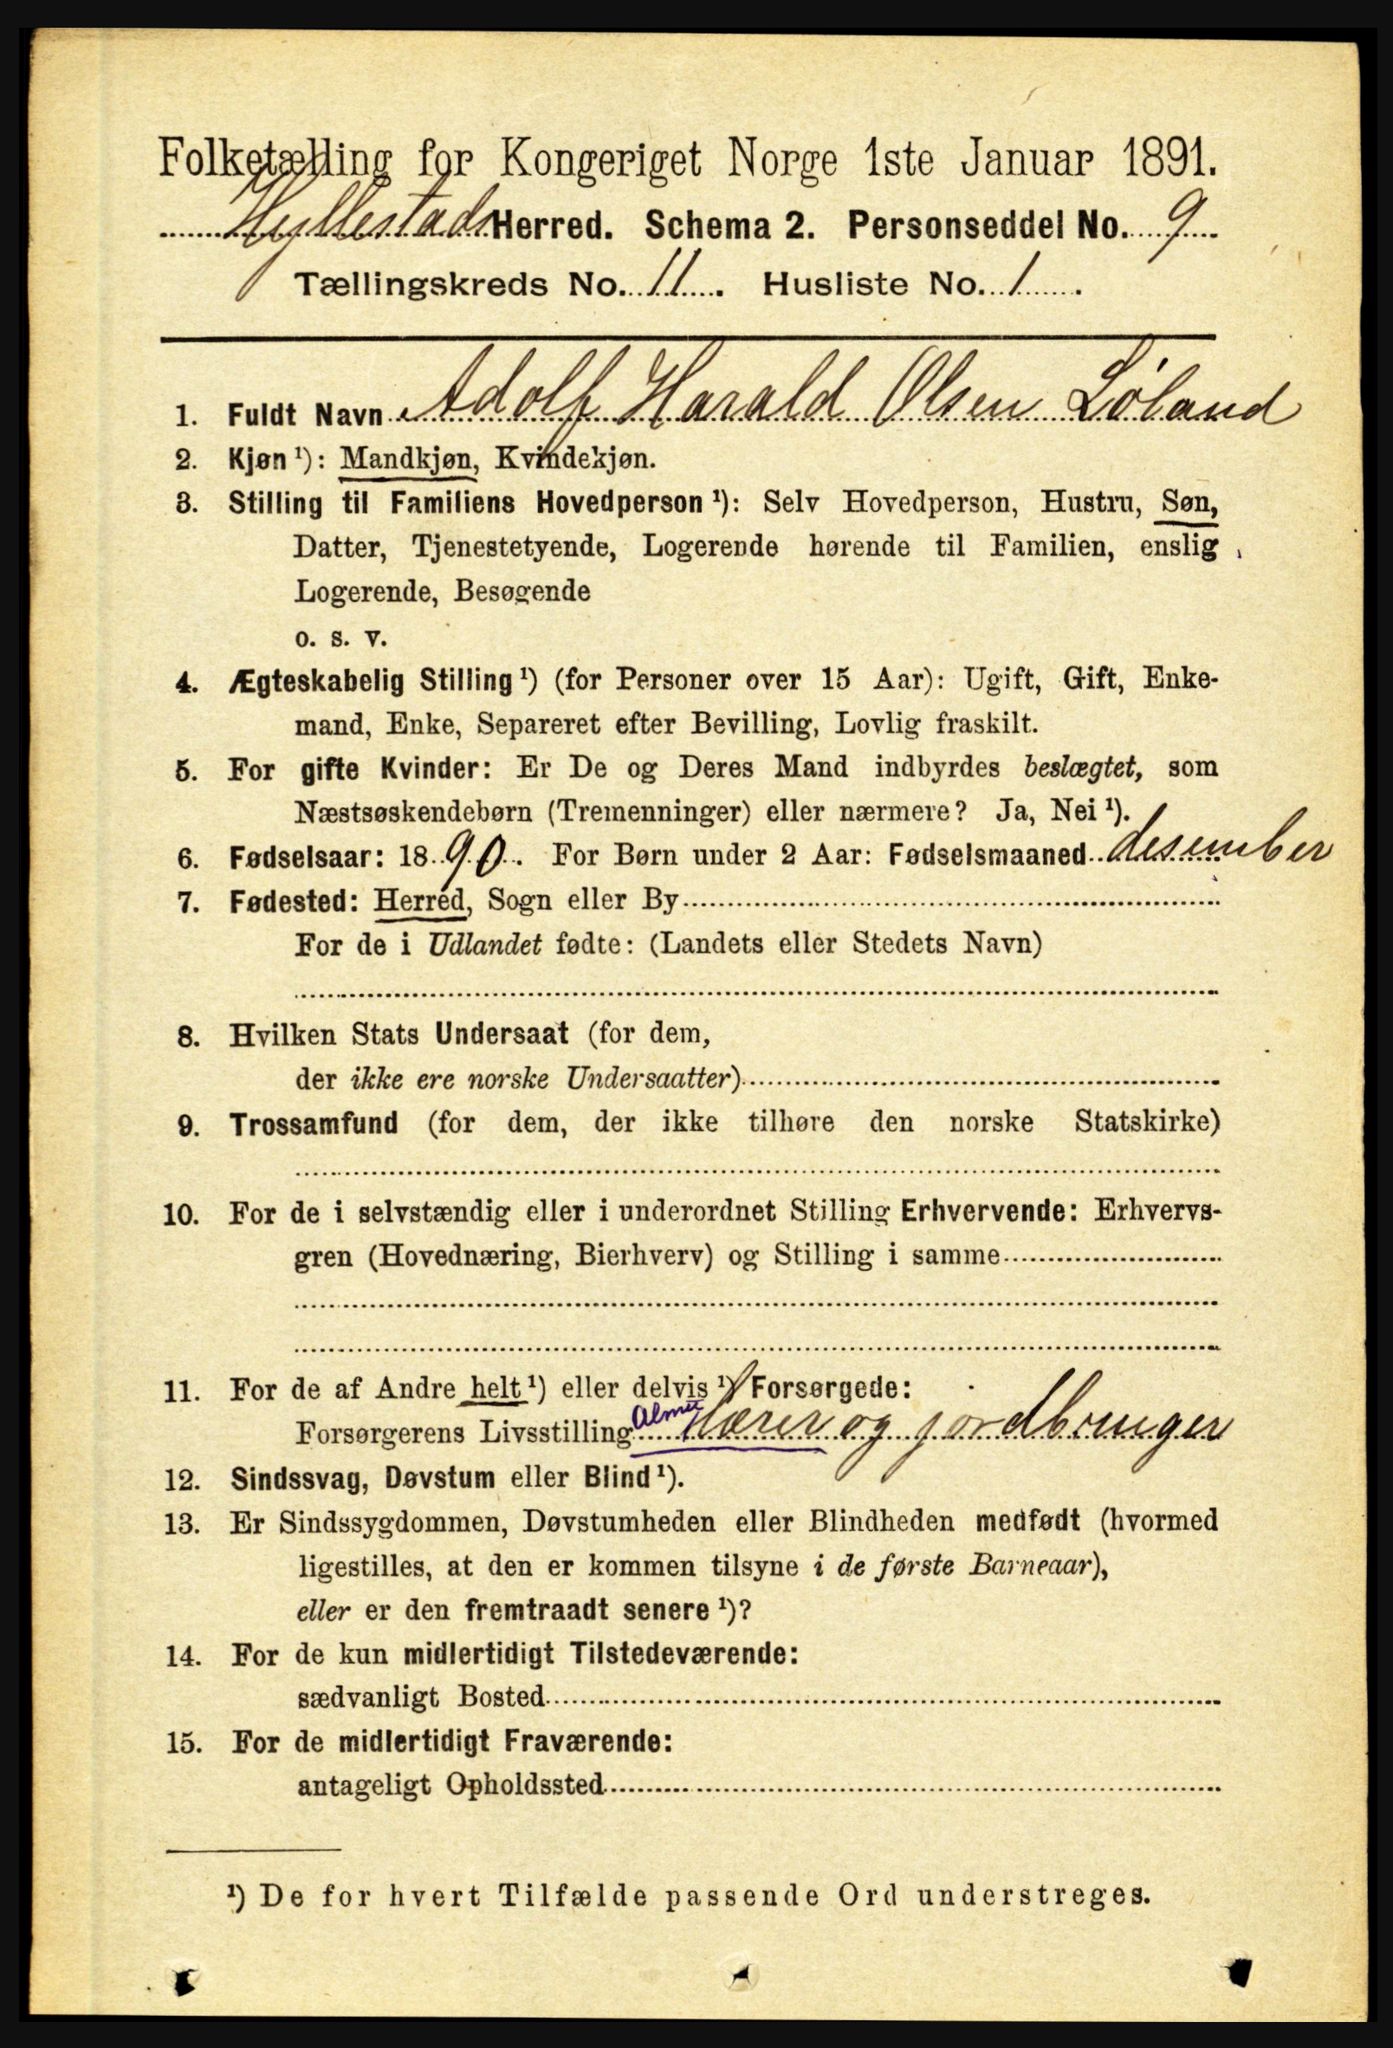 Folketælling for Kongeriget Norge 1ste Januar 1891.
Hyllestads Herred. Schema 2. Personseddel No. 9
Tællingskreds No. 11. Husliste No. 1.
1. Fuldt Navn Adolf Harald Olsen Løland
2. Kjøn ¹): Mandkjøn, Kvindekjøn.
3. Stilling til Familiens Hovedperson ¹): Selv Hovedperson, Hustru, Søn,
Datter, Tjenestetyende, Logerende hørende til Familien, enslig
Logerende, Besøgende
o. s. v.
4. Ægteskabelig Stilling ¹) (for Personer over 15 Aar): Ugift, Gift, Enke-
mand, Enke, Separeret efter Bevilling, Lovlig fraskilt.
5. For gifte Kvinder: Er De og Deres Mand indbyrdes beslægtet, som
Næstsøskendebørn (Tremenninger) eller nærmere? Ja, Nei ¹).
6. Fødselsaar: 1890. For Børn under 2 Aar: Fødselsmaaned desember
7. Fødested: Herred, Sogn eller By
For de i Udlandet fødte: (Landets eller Stedets Navn)
8. Hvilken Stats Undersaat (for dem,
der ikke ere norske Undersaatter)
9. Trossamfund (for dem, der ikke tilhøre den norske Statskirke)
10. For de i selvstændig eller i underordnet Stilling Erhvervende: Erhvervs-
gren (Hovednæring, Bierhverv) og Stilling i samme
11. For de af Andre helt ¹) eller delvis ¹) Forsørgede:
Forsørgerens Livsstilling Almue lærer og jordbruger
12. Sindssvag, Døvstum eller Blind ¹).
13. Er Sindssygdommen, Døvstumheden eller Blindheden medfødt (hvormed
ligestilles, at den er kommen tilsyne i de første Barneaar),
eller er den fremtraadt senere ¹)?
14. For de kun midlertidigt Tilstedeværende:
sædvanligt Bosted
15. For de midlertidigt Fraværende:
antageligt Opholdssted
¹) De for hvert Tilfælde passende Ord understreges.